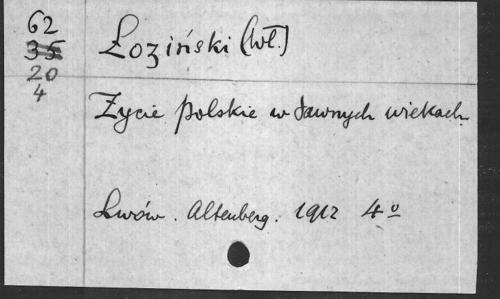 62
35
20
4
Łoziński (Wł.)
Życie polskie w dawnych wiekach.
Lwów. Altenberg. 1912 4º